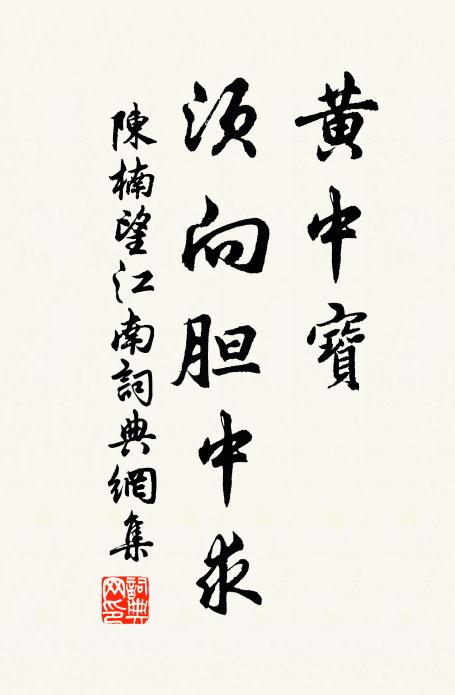 黃中寶
須向胆中求
陳楠望江南詞典網集
詞典
网印